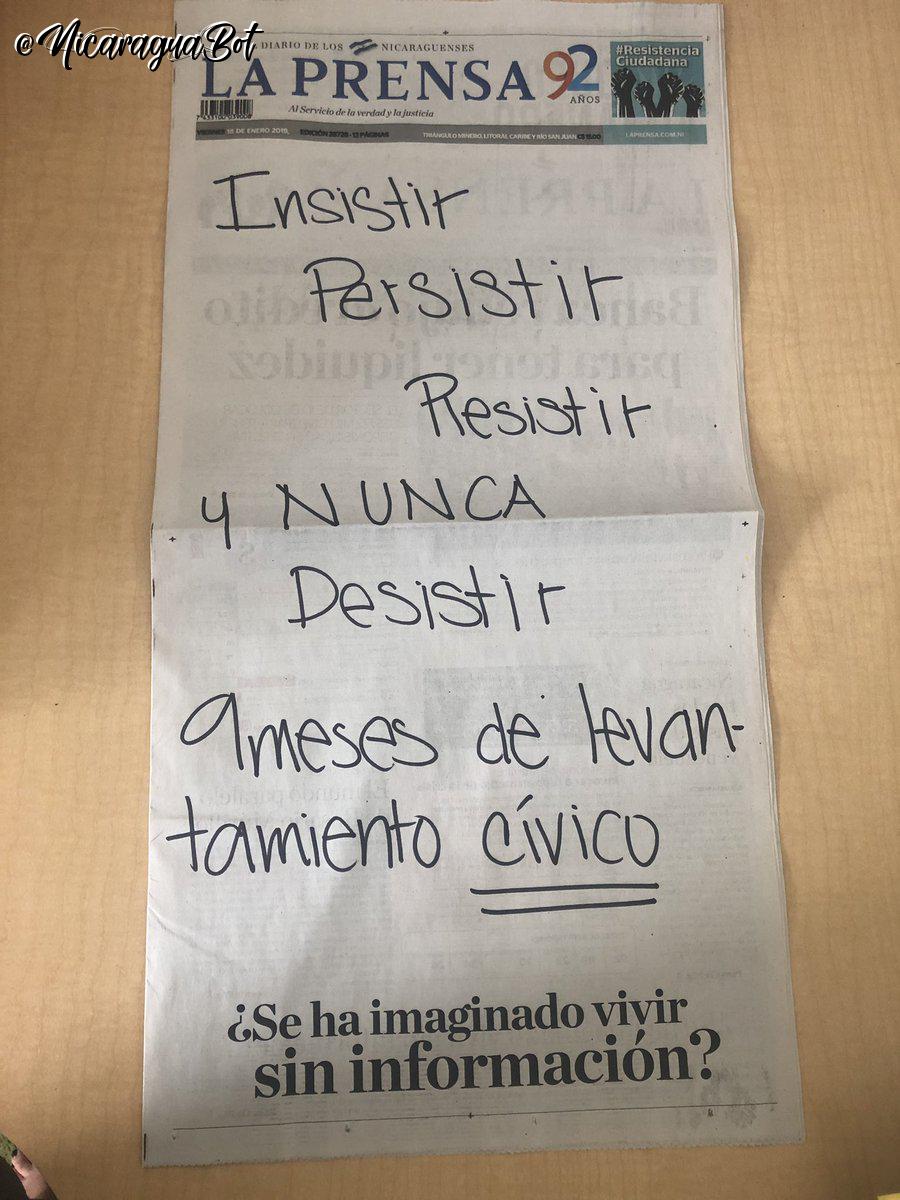 @NicaraguaBot
DIARIO DE LOS NICARAGUENSES
LA PRENSA 92
AÑOS
Al Servicio de la verdad y la justicia
#Resistencia
Ciudadana
VIERNES 18 DE ENERO 2019, EDICIÓN 28728 - 12 PÁGINAS TRIÁNGULO MINERO, LITORAL CARIBE Y RÍO SAN JUAN C$ 15.00 LAPRENSA.COM.NI
Insistir
Persistir
Resistir
y NUNCA
Desistir
9 meses de levan-
tamiento cívico
¿Se ha imaginado vivir
sin información?